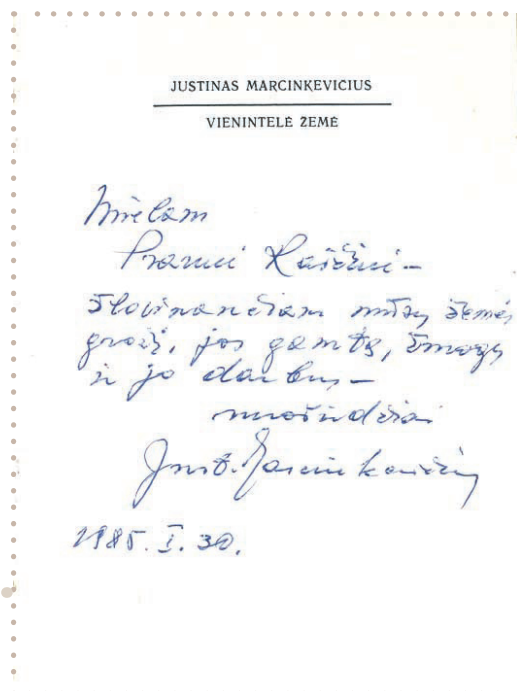 JUSTINAS MARCINKEVIČIUS
VIENINTELĖ ŽEMĖ
Mielam
Pranui
šlovinančiam mūsų žemės
grožį, jos gamtą, žmogų
ir jo darbus –
nuoširdžiai
Just. Marcinkevičius
1985. I. 30.